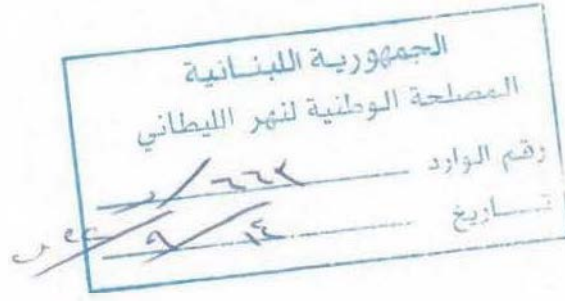 الجمهورية اللبنانية
المصلحة الوطنية لنهر الليطاني
رقم الوارد ٦٦٢ / د
تاريخ ١٤ / ٩ /